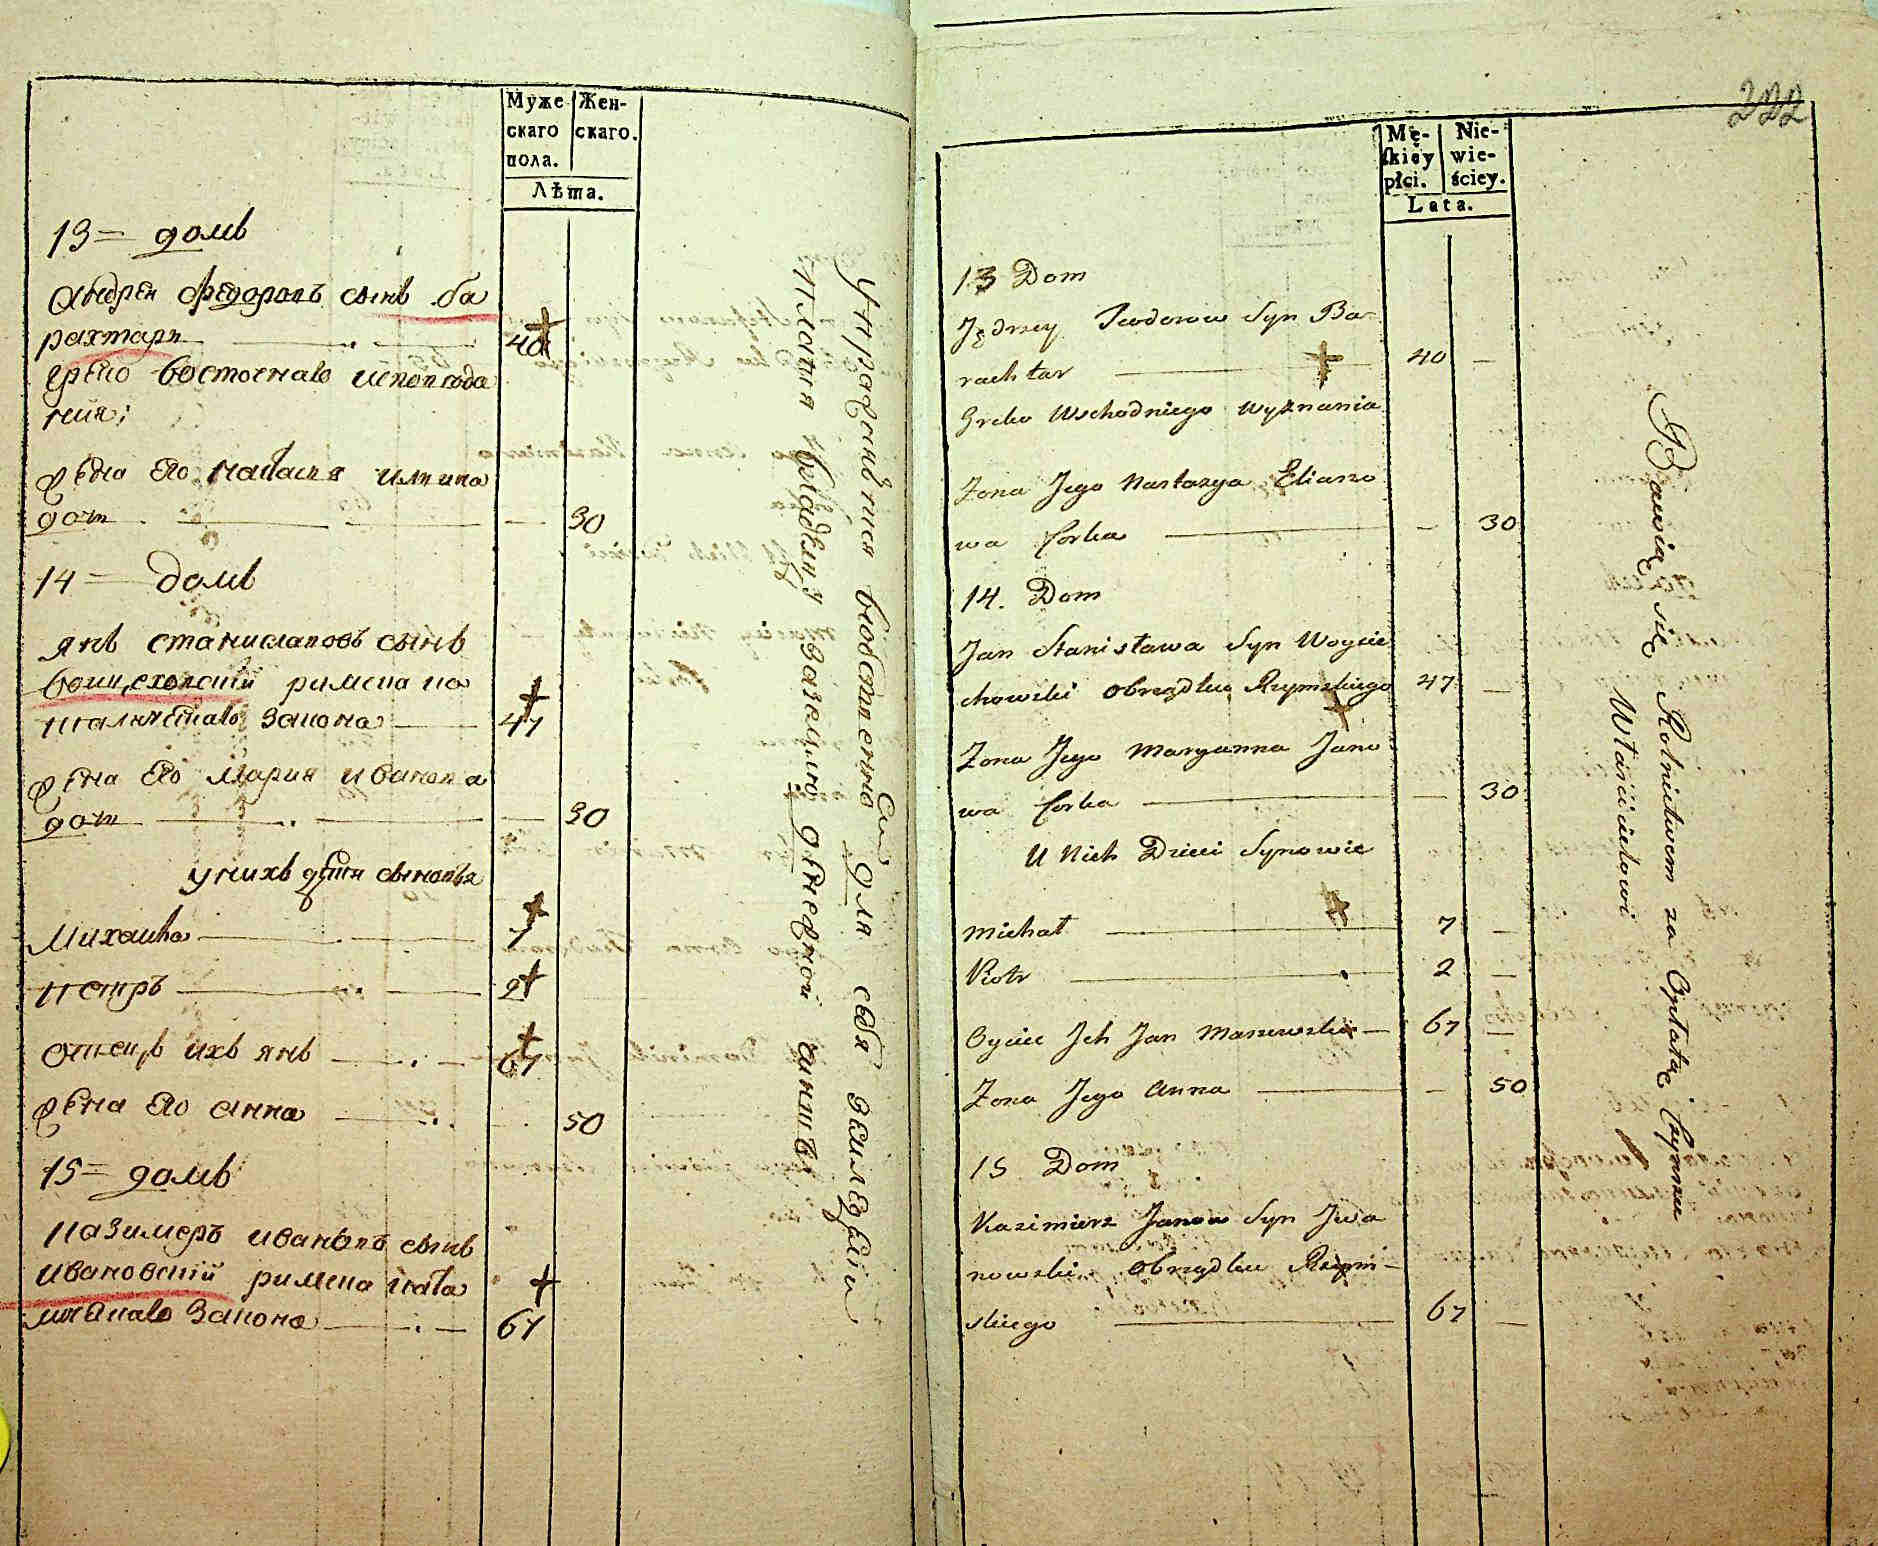 Муже
скаго
пола.
Жен-
скаго.
Лѣта.
13 = домъ
Андрей Федоровъ сынъ Ба
рахтаръ — 40
греко восточнаго исповѣда
нія;
Жена Его Настасья Ильина
дочь — 30
14 = домъ
Янъ Станиславовъ сынъ
Войцеховскій римско ка
толическаго закона — 47
Жена Его Мария Иванова
дочь — 30
у нихъ дѣти сыновья
Михайло — 7
Петръ — 2
Отецъ ихъ Янъ — 67
Жена Его Анна — 50
15 = домъ
Казимеръ Ивановъ сынъ
Ивановскій римско като
лическаго закона — 67
Упражняются въ собственно для себя земледѣліи
платя владельцу за землю денежной чиншъ
222
Mę-
skiey
płci.
Nie-
wie-
ściey.
Lata.
13 Dom
Jędrzey Teodorow Syn Ba-
rachtar — 40 —
Greko Wschodniego wyznania
Zona Jego Nastazya Eliaszo
wa Corka — — 30
14. Dom
Jan Stanisława Syn Woycie
chowski obrządku Rzymskiego 47 —
Zona Jego Maryanna Jano
wa Corka — — 30
U Nich Dzieci Synowie
Michał — 7 —
Piotr — 2 —
Oyciec Jch Jan Maszewski — 67 —
Zona Jego Anna — — 50
15 Dom
Kazimierz Janow Syn Jwa
nowski obrządku Rzym-
skiego — 67 —
Bawią się Rolnictwem za Opłatą Czynszu
Właścicielowi